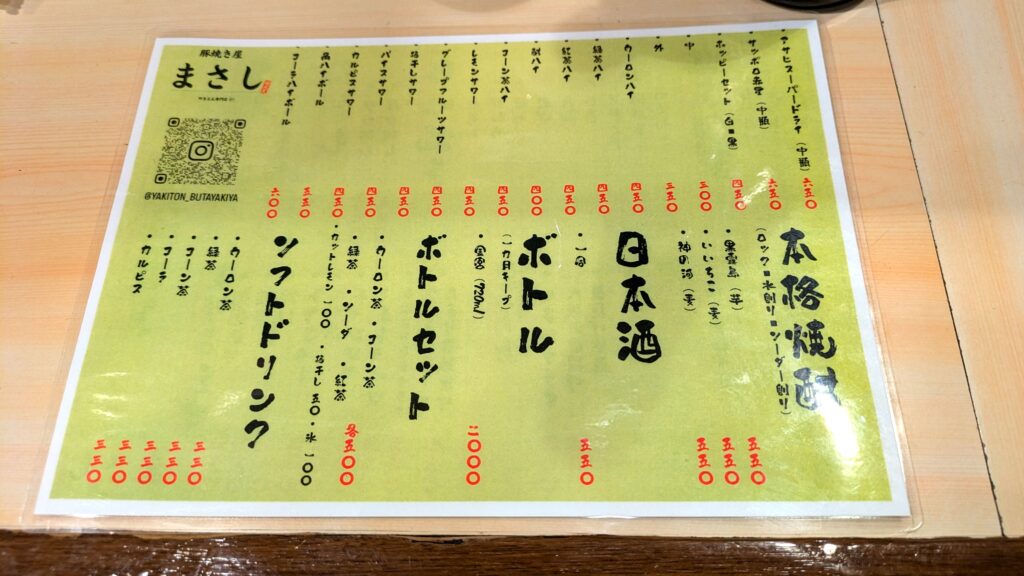 ・アサヒスーパードライ(中瓶) 六五〇
・サッポロ赤星(中瓶) 六五〇
・ホッピーセット(白・黒) 四五〇
・中 三〇〇
・外 三五〇
・ウーロンハイ 四五〇
・緑茶ハイ 四五〇
・紅茶ハイ 四五〇
・酎ハイ 四〇〇
・コーン茶ハイ 四五〇
・レモンサワー 四五〇
・グレープフルーツサワー 四五〇
・梅干しサワー 四五〇
・バイスサワー 四五〇
・カルピスサワー 四五〇
・角ハイボール 五五〇
・コーラハイボール 六〇〇
豚焼き屋
まさし
@YAKITON_BUTAYAKIYA
本格焼酎
(ロック・水割り・ソーダー割り)
・黒霧島(芋) 五五〇
・いいちこ(麦) 五五〇
・神の河(麦) 五五〇
日本酒
・一合 五五〇
ボトル
(一カ月キープ)
・金宮(720ml) 二〇〇〇
ボトルセット
・ウーロン茶 ・コーン茶
・緑茶 ・ソーダ ・紅茶 各五〇〇
・カットレモン 一〇〇 ・梅干し 五〇 ・氷 一〇〇
ソフトドリンク
・ウーロン茶 三三〇
・緑茶 三三〇
・コーン茶 三三〇
・コーラ 三三〇
・カルピス 三三〇